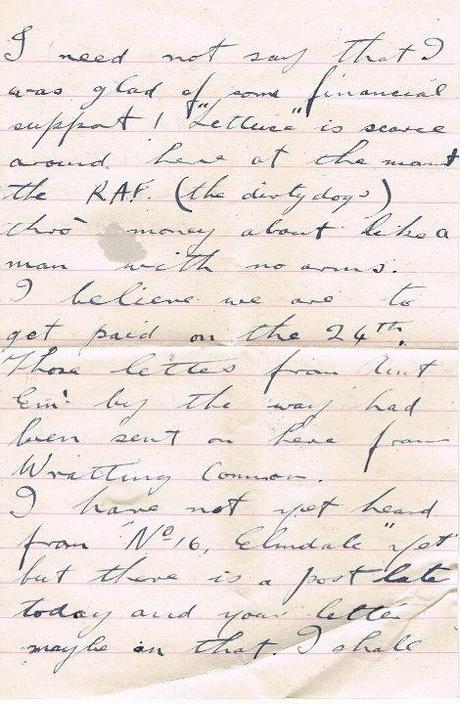 I need not say that I
was glad of some financial
support! "Lettuce" is scarce
around here at the momt
the RAF. (the dirty dogs)
thro' money about like a
man with no arms.
I believe we are to
get paid on the 24th.
Those letters from Aunt
Em: by the way had
been sent on here from
Wratting Common.
I have not yet heard
from "No 16, Elmdale" yet
but there is a post late
today and your letter
maybe on that. I shall